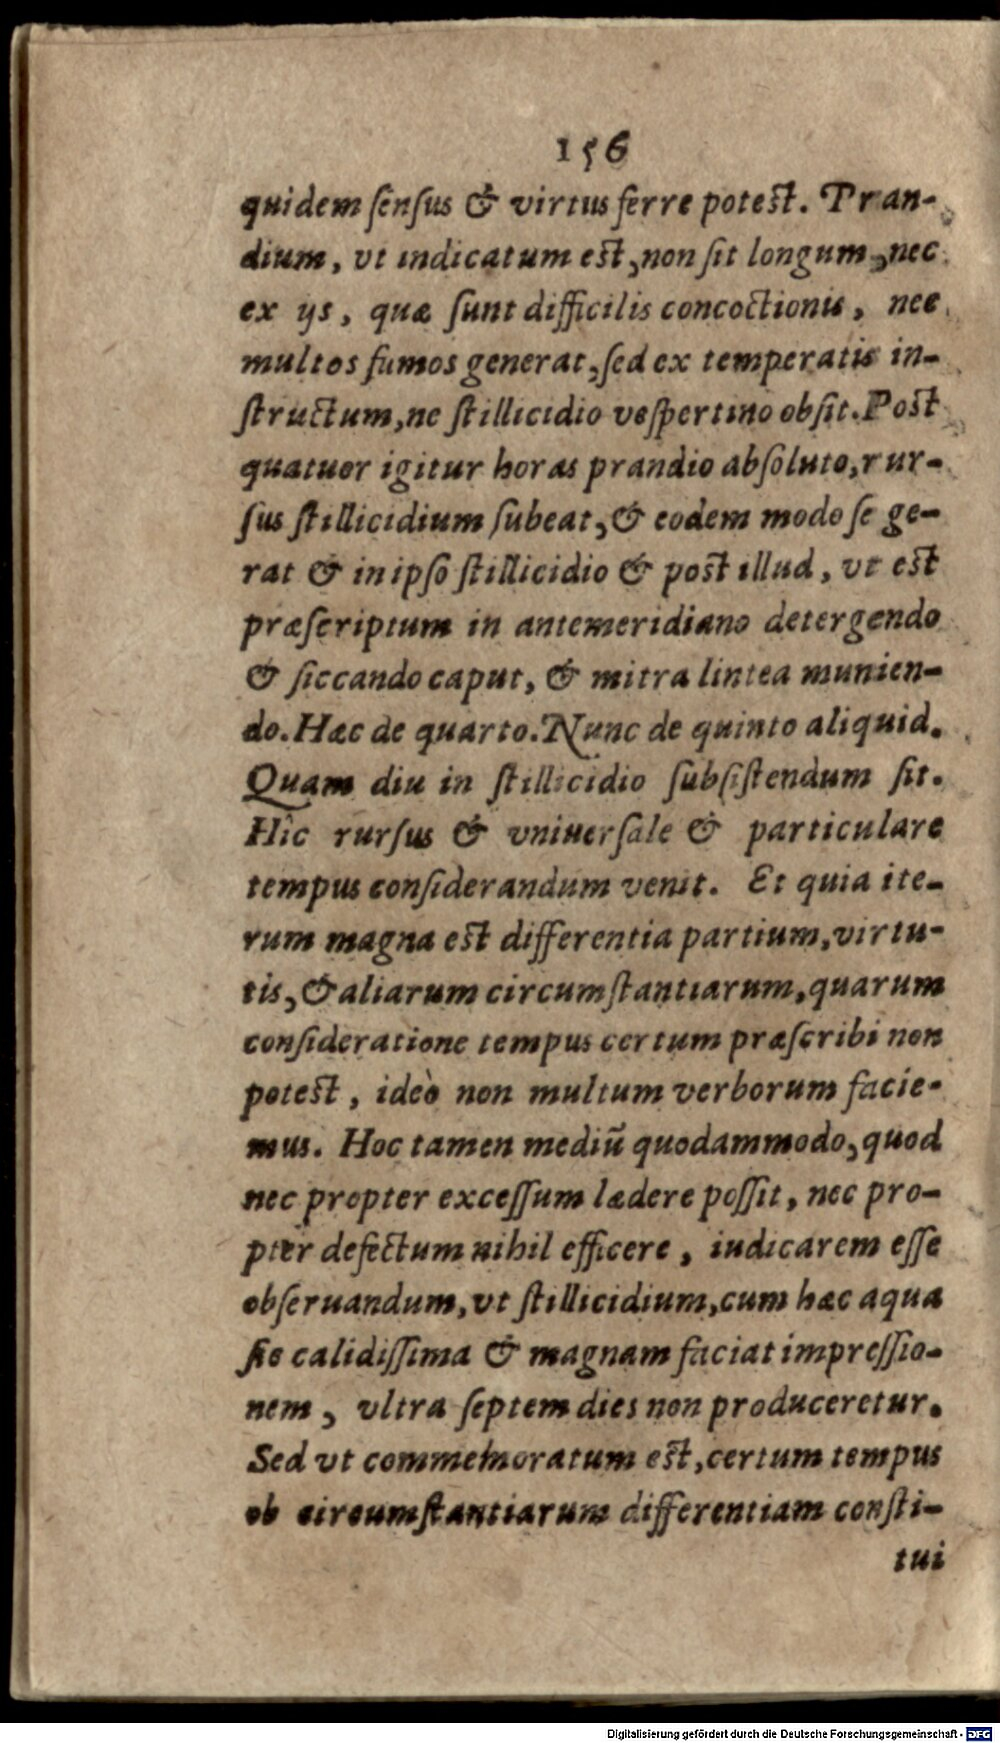 156
quidem ſenſus & virtus ferre potest. Pran-
dium, vt indicatum est, non ſit longum, nec
ex ijs, quæ ſunt difficilis concoctionis, nec
multos fumos generat, ſed ex temperatis in-
ſtructum, ne ſtillicidio veſpertino obſit. Post
quatuor igitur horas prandio abſoluto, rur-
ſus ſtillicidium ſubeat, & eodem modo ſe ge-
rat & in ipſo ſtillicidio & post illud, vt est
præſcriptum in antemeridiano detergendo
& ſiccando caput, & mitra lintea munien-
do. Hæc de quarto. Nunc de quinto aliquid.
Quam diu in ſtillicidio ſubſiſtendum ſit.
Hîc rurſus & vniuerſale & particulare
tempus conſiderandum venit. Et quia ite-
rum magna est differentia partium, virtu-
tis, & aliarum circumſtantiarum, quarum
conſideratione tempus certum præſcribi non
potest, ideò non multum verborum facie-
mus. Hoc tamen mediũ quodammodo, quod
nec propter exceſſum lædere poſſit, nec pro-
pter defectum nihil efficere, iudicarem eſſe
obſeruandum, vt ſtillicidium, cum hæc aqua
ſit calidiſſima & magnam faciat impreſſio-
nem, vltra ſeptem dies non produceretur.
Sed vt commemoratum est, certum tempus
ob circumſtantiarum differentiam conſti-
tui
Digitalisierung gefördert durch die Deutsche Forschungsgemeinschaft - DFG